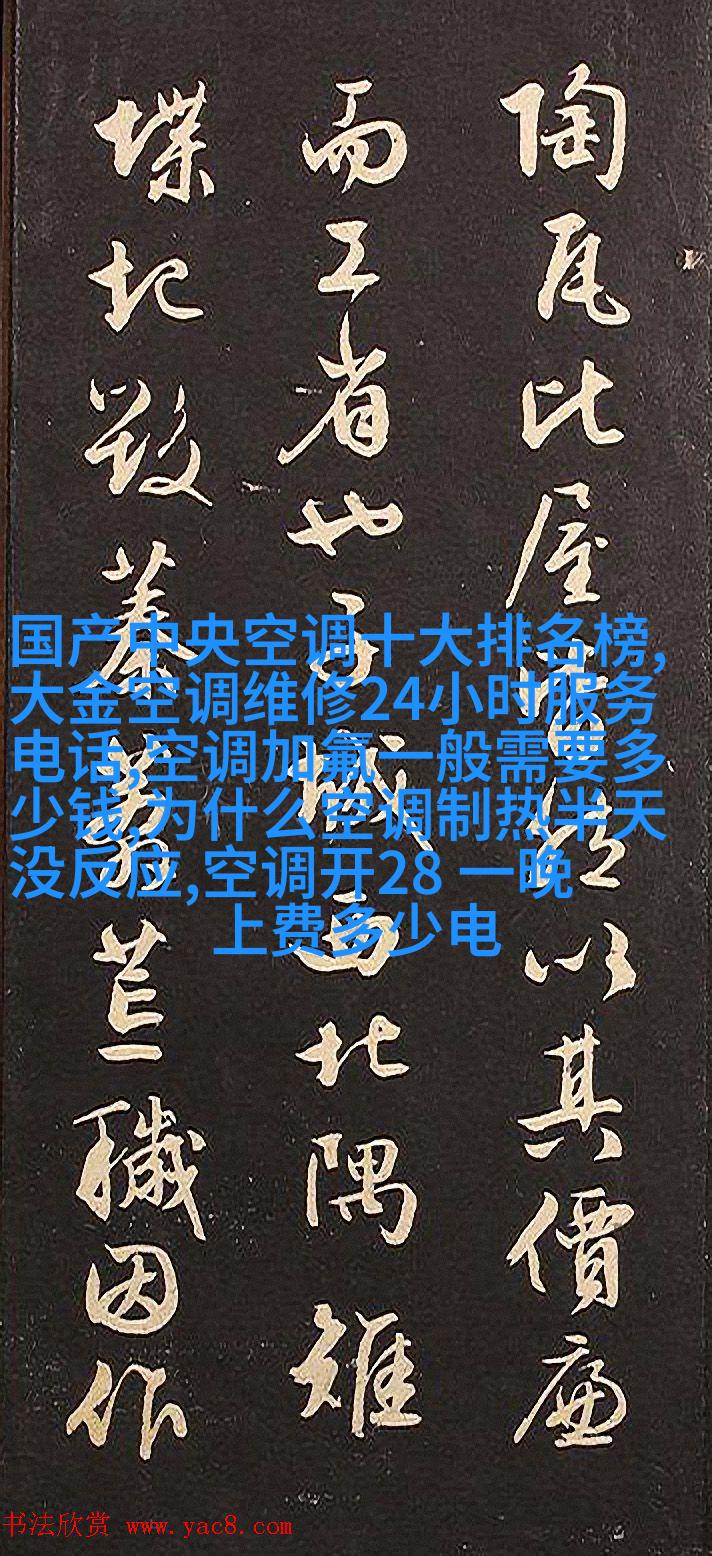 陶瓦比屋皆然以其價廉
而工省也子城西北隅雉
堞圮毀蓁莽荒穢因作
国产中央空调十大排名榜,
大金空调维修24小时服务
电话,空调加氟一般需要多
少钱,为什么空调制热半天
没反应,空调开28 一晚
上费多少电
书法欣赏 www.yac8.com